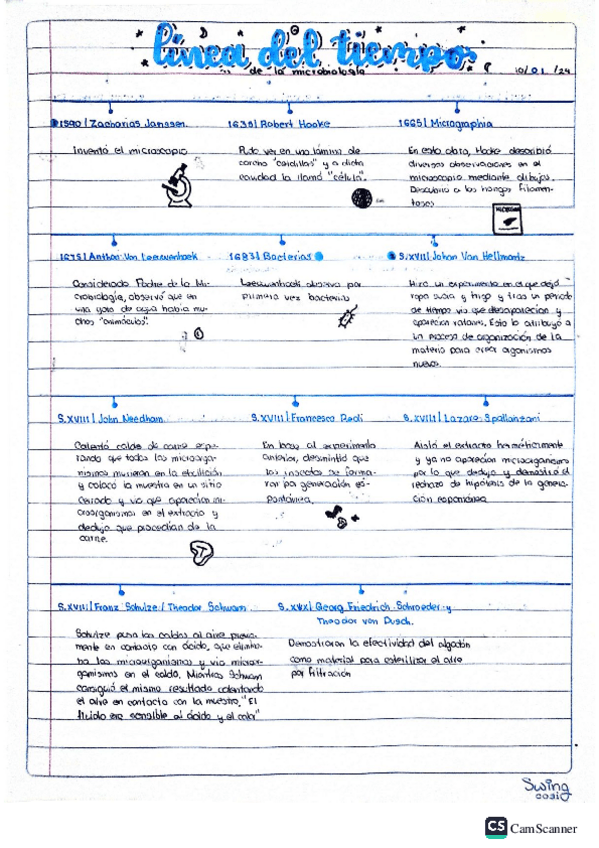 línea del tiempo
de la microbiología
10/01/24
1590 | Zacharias Janssen
Inventó el microscopio
1635 | Robert Hooke
Pudo ver en una lámina de
corcho "celdillas" y a dicha
cavidad la llamó "célula".
1665 | Micrographia
En esta obra, Hooke describió
diversas observaciones en el
microscopio mediante dibujos.
Descubrió a los hongos filamen-
tosos
1675 | Anthon Van Leeuwenhoek
Considerado Padre de la Mi-
crobiología, observó que en
una gota de agua había mu-
chos "animáculos".
1683 | Bacterias
Leeuwenhoek observa por
primera vez bacterias
S.XVIII | Johan Van Hellmontz
Hizo un experimento en el que dejó
ropa sucia y trigo y tras un periodo
de tiempo vio que desaparecían y
aparecían ratones. Esto lo atribuyó a
un proceso de organización de la
materia para crear organismos
nuevos.
S.XVIII | John Needham
Calentó caldo de carne espe-
rando que todos los microorga-
nismos murieran en la ebullición
y colocó la muestra en un sitio
cerrado y vio que aparecían mi-
croorganismos en el extracto y
dedujo que procedían de la
carne.
S.XVIII | Francesco Redi
En base al experimento
anterior, desmintió que
los insectos se forma-
ran por generación es-
pontánea.
S.XVIII | Lazaro Spallanzani
Aisló el extracto herméticamente
y ya no aparecían microorganismos
por lo que dedujo y demostró el
rechazo de hipótesis de la genera-
ción espontánea
S.XVIII | Franz Schulze / Theodor Schwam
Schulze puso los caldos al aire previa-
mente en contacto con ácido, que elimina-
ba los microorganismos y vio micror-
ganismos en el caldo. Mientras Schwam
consiguió el mismo resultado calentando
el aire en contacto con la muestra. "El
fluido era sensible al ácido y el calor"
Georg Friedrich Schroeder y
Theodor von Dusch.
Demostraron la efectividad del algodón
como material para esterilizar el aire
por filtración
Swing
CS CamScanner